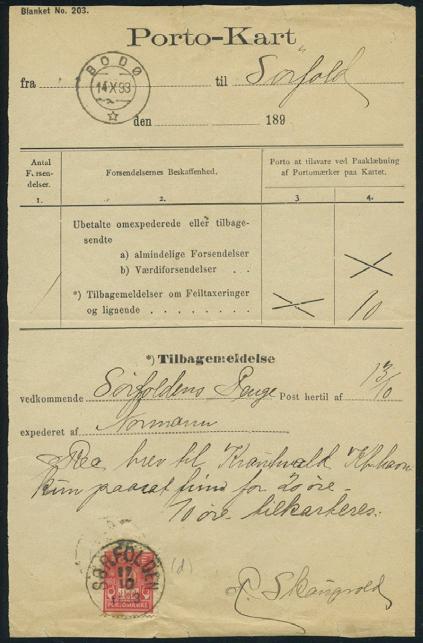 Blanket No. 203.
Porto-Kart
fra BODØ 14 X 93 til Sörfold
den 189
Antal Forsendelser. Forsendelsernes Beskaffenhed. Porto at tilsvare ved Paaklæbning af Portomærker paa Kartet.
1. 2. 3. 4.
Ubetalte omexpederede eller tilbagesendte
a) almindelige Forsendelser
b) Værdiforsendelser . .
*) Tilbagemeldelser om Feiltaxeringer
og lignende . . . . . . . . 10
*) Tilbagemeldelse
vedkommende Sörfoldens Penge Post hertil af 13/10
expederet af Normann
Rec brev til
kun paasat frim for 20 öre.
10 öre tilkarteres.
SØRFOLDEN
17
10
PORTOMÆRKE
(d)